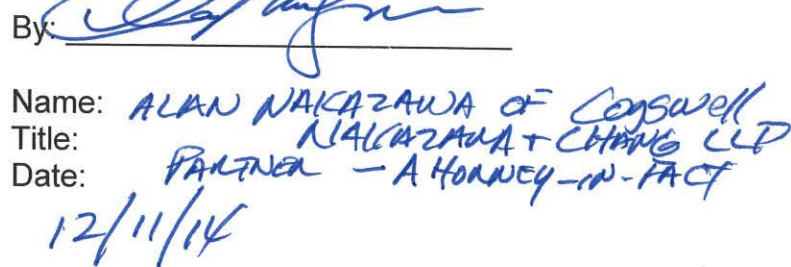 By:
Name: ALAN NAKAZAWA OF Cogswell
Title: NAKAZAWA + CHANG LLP
Date: PARTNER - ATTORNEY-IN-FACT
12/11/14